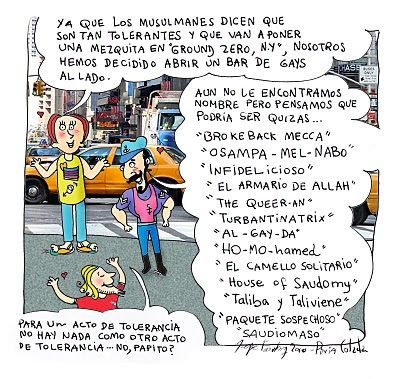 YA QUE LOS MUSULMANES DICEN QUE
SON TAN TOLERANTES Y QUE VAN A PONER
UNA MEZQUITA EN "GROUND ZERO, N.Y", NOSOTROS
HEMOS DECIDIDO ABRIR UN BAR DE GAYS
AL LADO.
AUN NO LE ENCONTRAMOS
NOMBRE PERO PENSAMOS QUE
PODRÍA SER QUIZAS...
"BROKEBACK MECCA"
"OSAMPA-MEL-NABO"
"INFIDELICIOSO"
"EL ARMARIO DE ALLAH"
"THE QUEER-AN"
"TURBANTINATRIX"
"AL-GAY-DA"
"HO-MO-hamed"
"EL CAMELLO SOLITARIO"
"House of Saudomy"
"Taliba y Taliviene"
"PAQUETE SOSPECHOSO"
"SAUDIOMASO"
PARA UN ACTO DE TOLERANCIA
NO HAY NADA COMO OTRO ACTO
DE TOLERANCIA...NO, PAPITO?